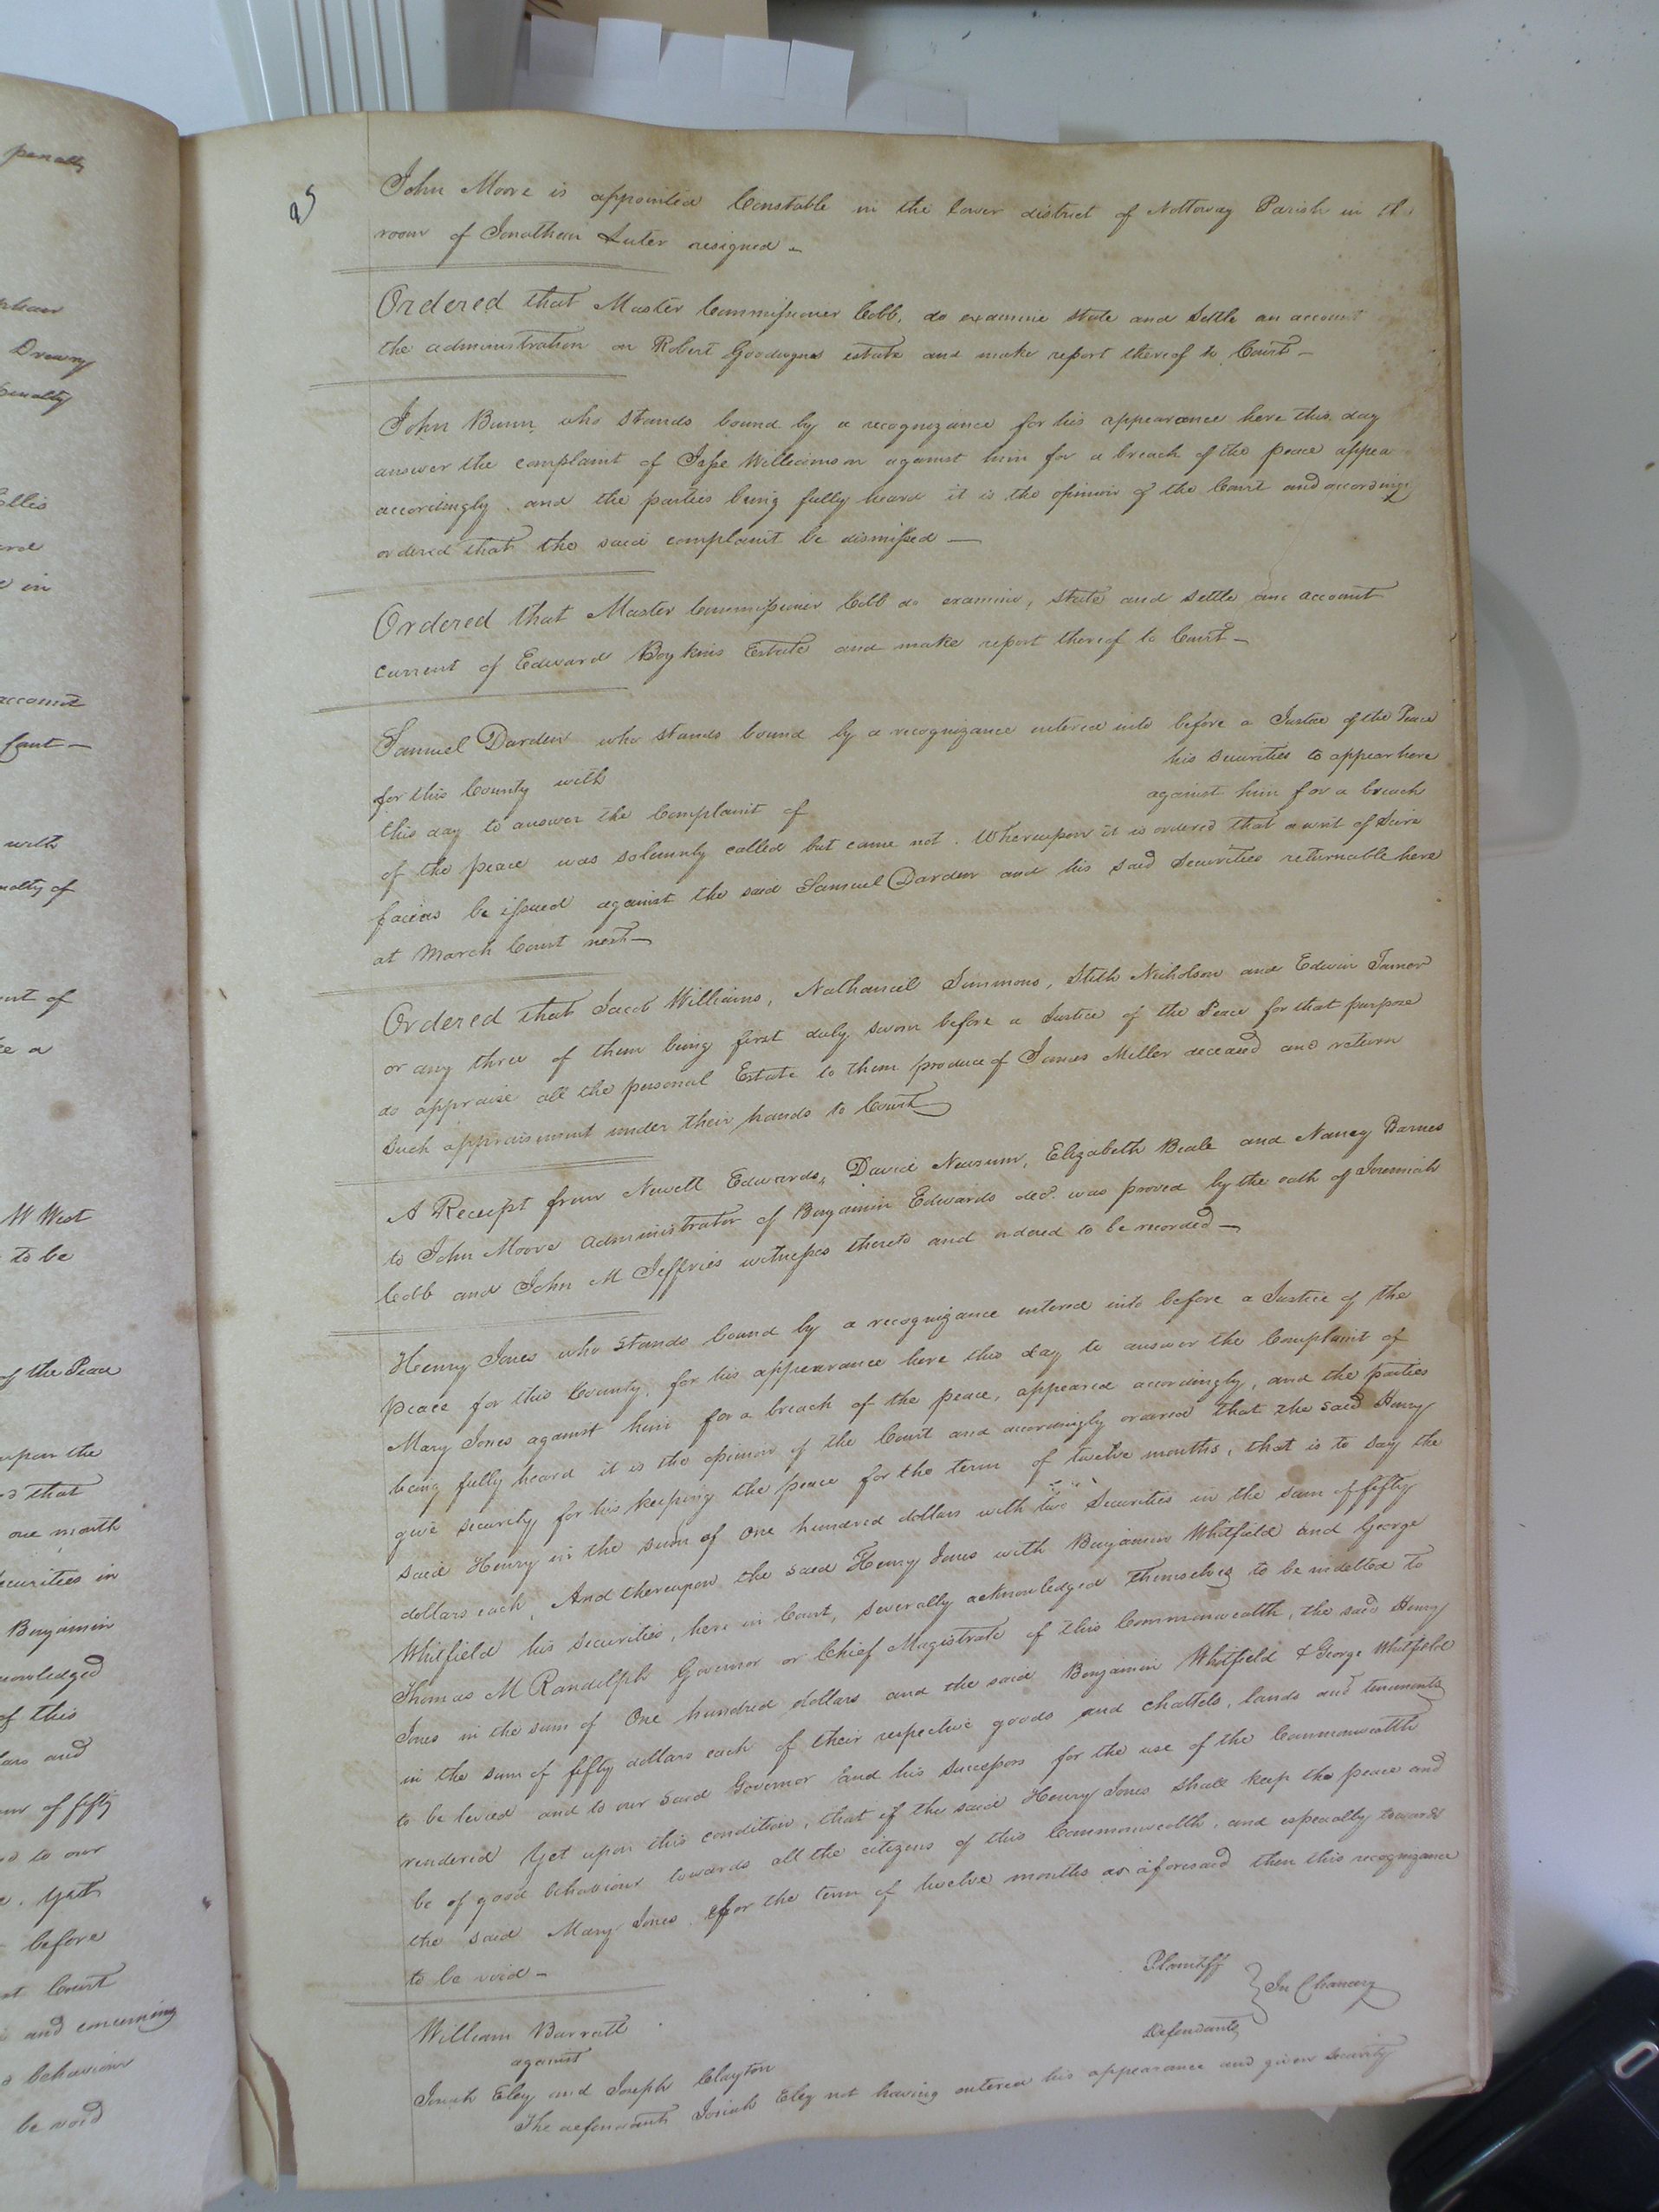 penalty
Drewry
penalty
Ellis
in
account
Court —
with
penalty of
of
a
W West
to be
of the Peace
upon the
that
one month
Securities in
Benjamin
acknowledged
of this
and
of fifty
to our
Yet
before
Court
and concerning
behaviour
be void
John Moore is appointed Constable in the lower district of Nottoway Parish in the
room of Jonathan Luter resigned —
Ordered that Master Commissioner Cobb, do examine state and settle an account
the administration on Robert Goodwyns estate and make report thereof to Court —
John Bunn who stands bound by a recognizance for his appearance here this day
answer the complaint of Jesse Williamson against him for a breach of the peace appea
accordingly and the parties being fully heard it is the opinion of the Court and accordingly
ordered that the said complaint be dismissed —
Ordered that Master Commissioner Cobb do examine, state and settle an account
current of Edward Boykins Estate and make report thereof to Court —
Samuel Darden who stands bound by a recognizance entered into before a Justice of the Peace
for this County with his securities to appear here
this day to answer the Complaint of against him for a breach
of the peace was solemnly called but came not. Whereupon it is ordered that a writ of Scire
facias be issued against the said Samuel Darden and his said Securities returnable here
at March Court next —
Ordered that Jacob Williams, Nathaniel Simmons, Stith Nicholson and Edwin Turner
or any three of them being first duly sworn before a Justice of the Peace for that purpose
do appraise all the personal Estate to them produce of James Miller deceased and return
such appraisement under their hands to Court
A Receipt from Newell Edwards, David Newsum, Elizabeth Beale and Nancy Barnes
to John Moore administrator of Benjamin Edwards decd. was proved by the oath of Jeremiah
Cobb and John M Jeffries witnesses thereto and ordered to be recorded —
Henry Jones who stands bound by a recognizance entered into before a Justice of the
peace for this County, for his appearance here this day to answer the Complaint of
Mary Jones against him for a breach of the peace, appeared accordingly, and the parties
being fully heard it is the opinion of the Court and accordingly ordered that the said Henry
give security for his keeping the peace for the term of twelve months, that is to say the
said Henry in the sum of One hundred dollars with two Securities in the sum of fifty
dollars each, And thereupon the said Henry Jones with Benjamin Whitfield and George
Whitfield his securities, here in Court, severally acknowledged themselves to be indebted to
Thomas M Randolph Governor or Chief Magistrate of this Commonwealth, the said Henry
Jones in the sum of One hundred dollars and the said Benjamin Whitfield & George Whitfield
in the sum of fifty dollars each of their respective goods and chattels, lands and tenements
to be levied and to our said Governor and his successors for the use of the Commonwealth
rendered Yet upon this condition, that if the said Henry Jones shall keep the peace and
be of good behaviour towards all the citizens of this Commonwealth, and especially towards
the said Mary Jones for the term of twelve months as aforesaid then this recognizance
to be void —
William Barrett Plaintiff
against } In Chancery
Josiah Eley and Joseph Clayton Defendants
The defendant Josiah Eley not having entered his appearance and given security